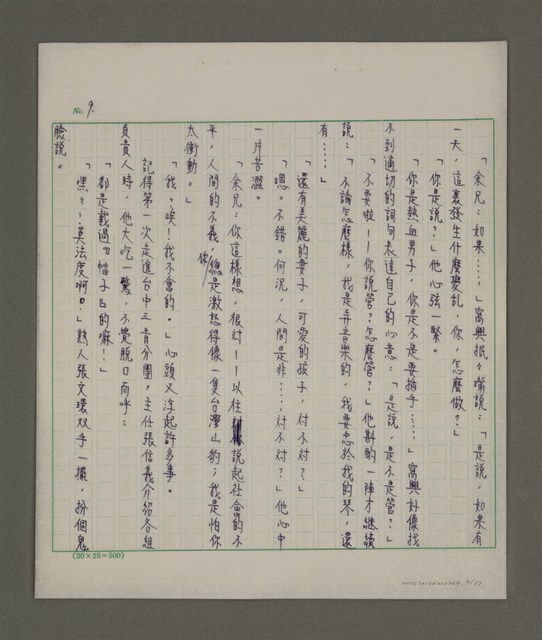 No. 9.
「余兄：如果……」寫興抿々嘴説：「是説，如果有
一天，這裏發生什麼變亂，你，怎麼做？」
「你是説？」他心弦一緊。
「你是熱血男子，你是不是要插手……」寫興好像找
不到適切的詞句表達自己的心意：「是説，是不是管？」
「不要啦！──你說管？怎麼管？」他斟酌一陣才繼續
説：「不論怎麼樣，我是弄音樂的，我要忠於我的琴，還
有……」
「還有美麗的妻子，可愛的孩子，對不對？」
「嗯。不錯。何況，人間是非……對不對？」他心中
一片苦澀。
「余兄：你這樣想，很對──以往説起社會的不
平，人間的不義，你總是激怒得像一隻台灣山豹；我是怕你
太衝動。」
「我。唉！我不會的。」心頭又浮起許多事。
記得第一次走進台中三青分團，主任張信義介紹各組
負責人時，他大吃一驚，不覺脱口而呼：
「都是戴過『帽子』的嘛！」
「嘿々！莫法度啊。」熟人張文環双手一攤，扮個鬼
臉說。
(20×25=500)